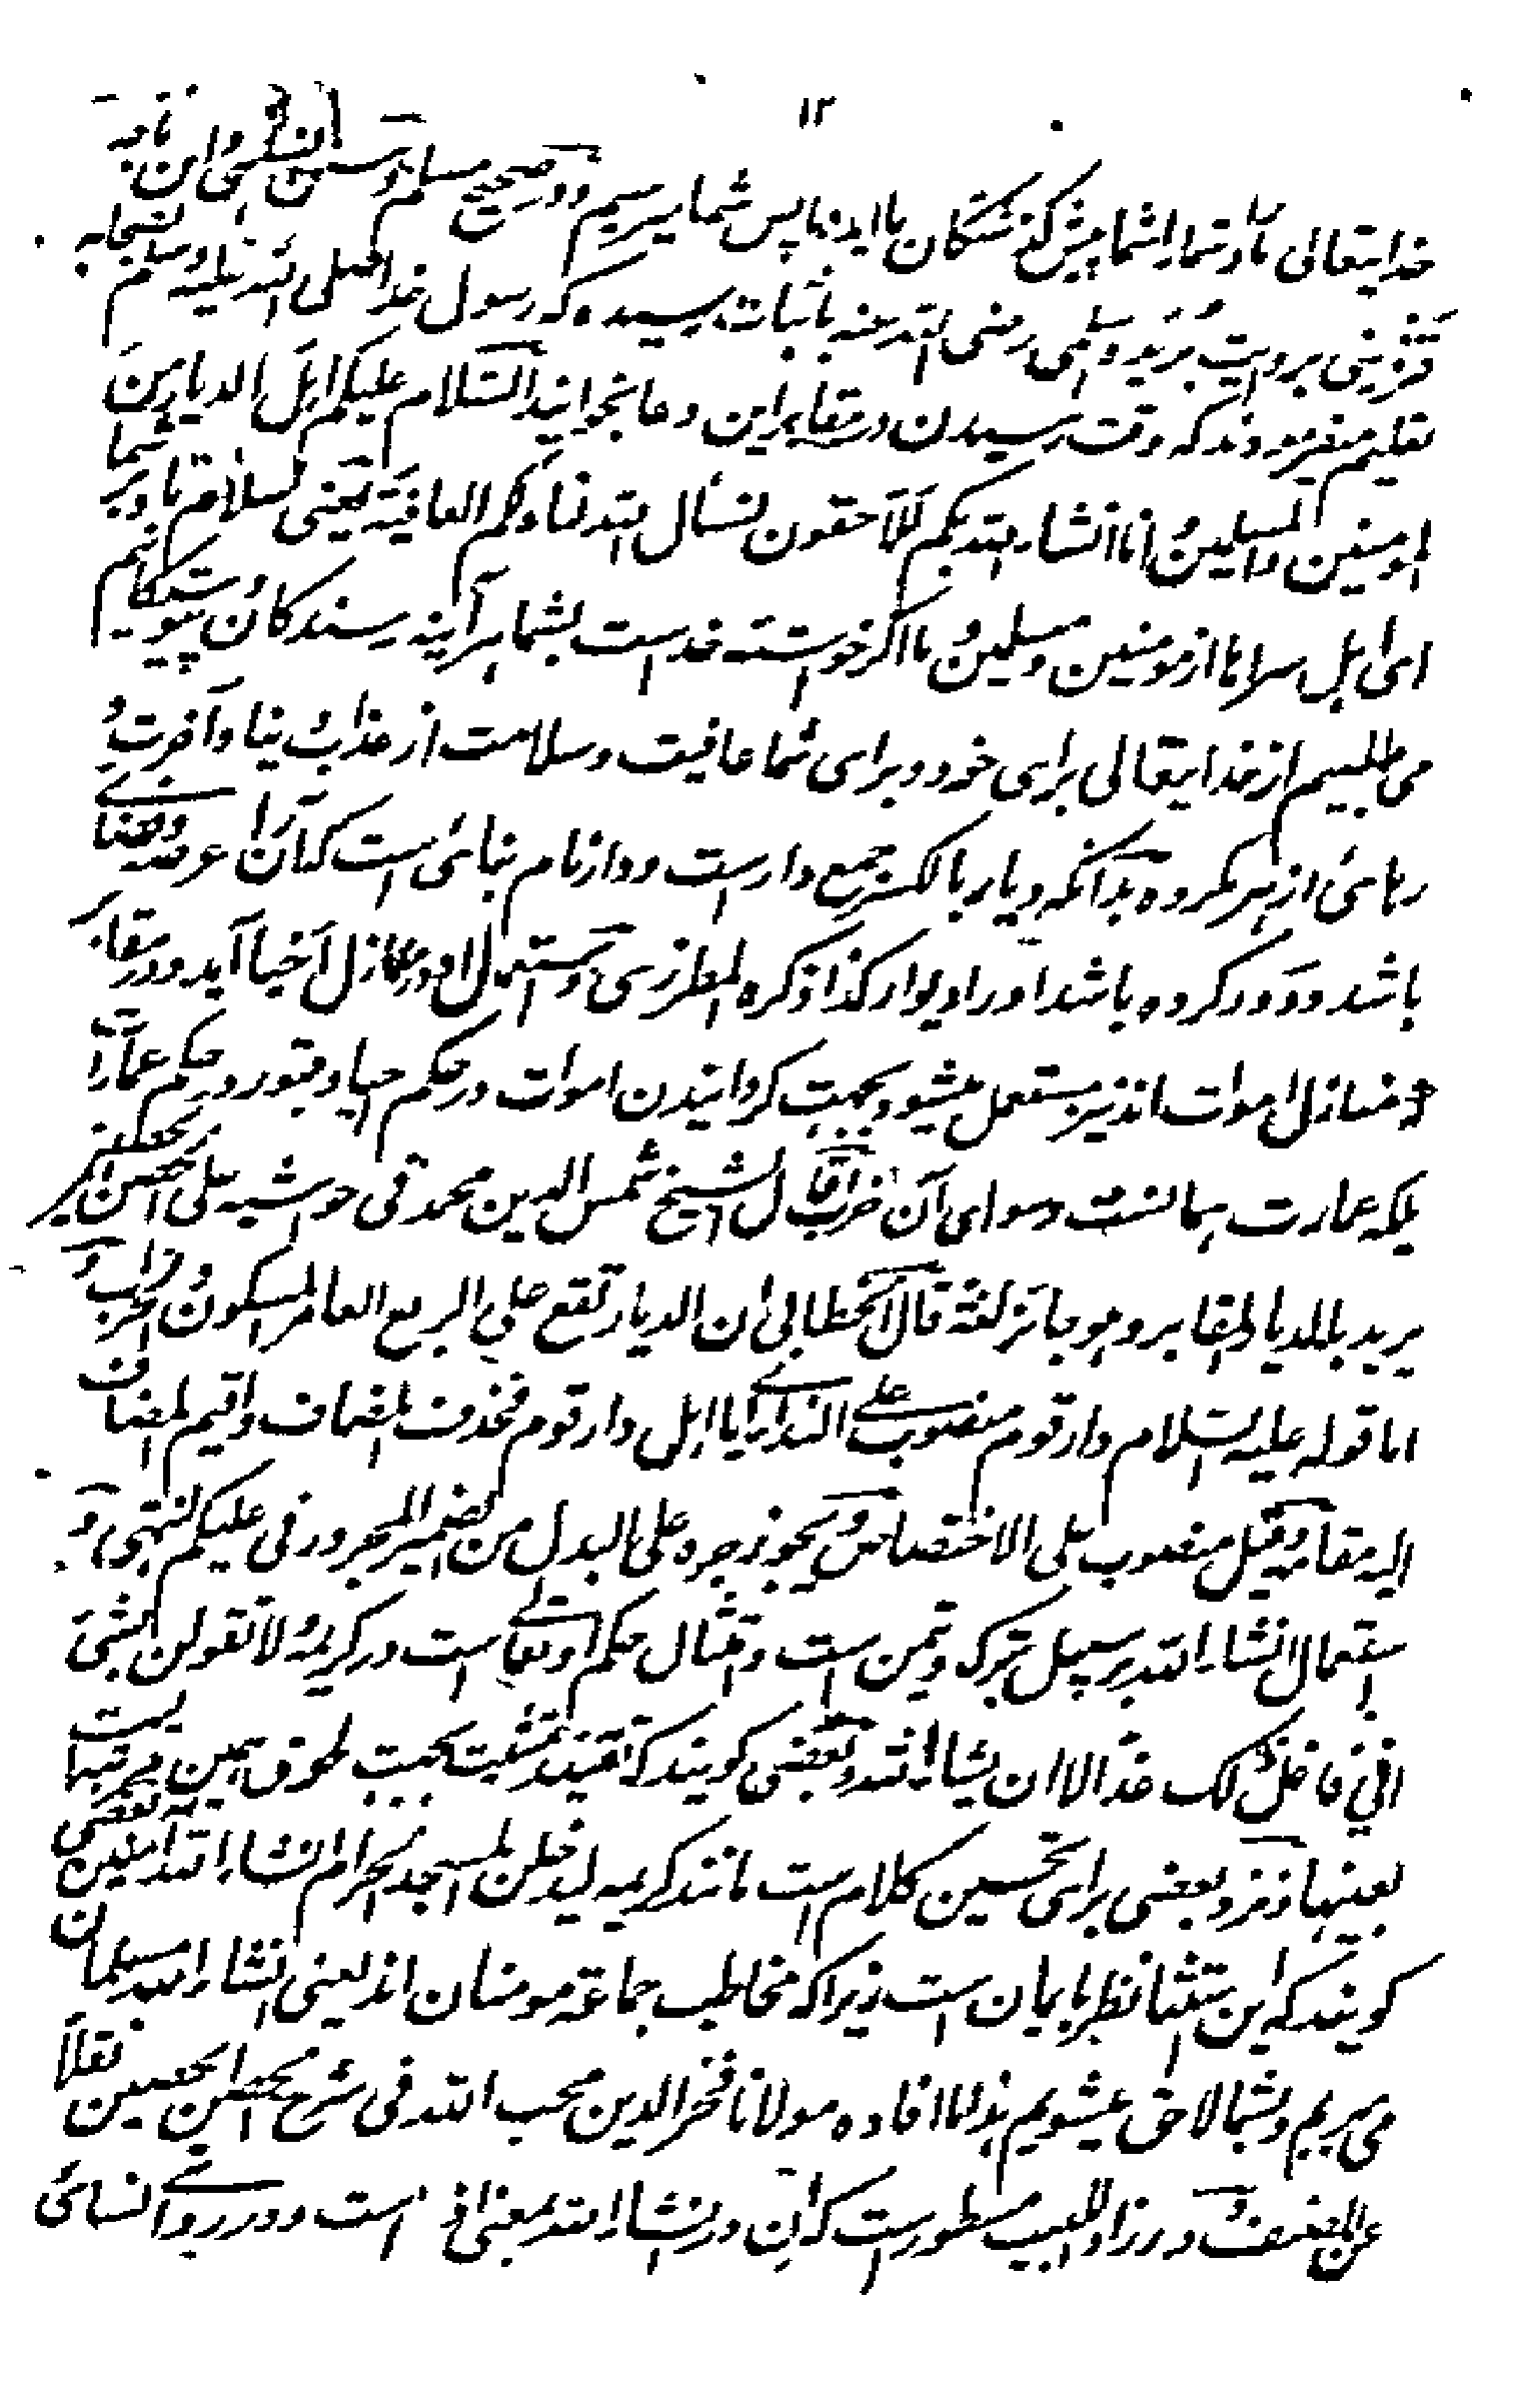 ١٢
خدایتعالی ما را و شما را شما پیش گذشتگان ما اید و ما پس شما میرسیم و در صحیح مسلم و سنن النسائی و ابن ماجه
قزوینی بروایت بریده اسلمی رضی الله عنه باثبات رسیده که رسول خدا صلی الله علیه وسلم صحابه
تعلیم میفرمودند که وقت رسیدن در مقابر این دعا بخوانید السلام علیکم اهل الدیار من
المومنین والمسلمین وانا انشاء الله بکم للاحقون نسأل الله لنا ولکم العافیة یعنی سلام باد بر شما
ای اهل سراها از مومنین و مسلمین و ما اگر خواسته خداست بشما هر آینه رسندگان و پیوستگانیم
می طلبیم از خدایتعالی برای خود و برای شما عافیت و سلامت از عذاب دنیا و آخرت و
رهائی از هر مکروه بدانکه دیار بالکسر جمع دار است و دار نام بنائی است که آنرا عرصه و فضای
باشد و دور کرده باشد او را دیوار کذا ذکره المطرزی و استعمال او در منازل احیا آید و در مقابر
که منازل اموات اند نیز مستعمل میشود بجهت گردانیدن اموات در حکم احیا و قبور در حکم عمارات
بلکه عمارت همانست و سوای آن خراب قال الشیخ شمس الدین محمد فی حواشیه علی الحصن الحصین
یرید بالدیار المقابر وهو جائز لغة قال الخطابی ان الدیار تقع علی الربع العامر المسکون والخراب و
اما قوله علیه السلام دار قوم منصوب علی النداء ای یا اهل دار قوم فحذف المضاف واقیم المضاف
الیه مقامه وقیل منصوب علی الاختصاص ویجوز جره علی البدل من الضمیر المجرور فی علیکم انتهی و
استعمال انشاء الله بر سبیل تبرک و تیمن است و امتثال حکم او تعالی است در کریمه ولا تقولن لشیء
انی فاعل ذلک غدا الا ان یشاء الله و بعضی گویند که تقیید بمشیت بجهت لحوق بمین مرتبهاست
بعینها و نزد بعضی برای تحسین کلام است مانند کریمه لتدخلن المسجد الحرام انشاء الله آمنین و بعضی
گویند که این استثنا نظر بایمان است زیرا که مخاطب جماعه مومنان اند یعنی انشاء الله مسلمان
می میریم و بشما لاحق میشویم هذا ما افاده مولانا فخر الدین محب الله فی شرح الحصن الحصین نقلاً
عن المصنف و در زاد اللبیب مسطور است که ان در انشاء الله بمعنی اذ است و در روایت نسائی